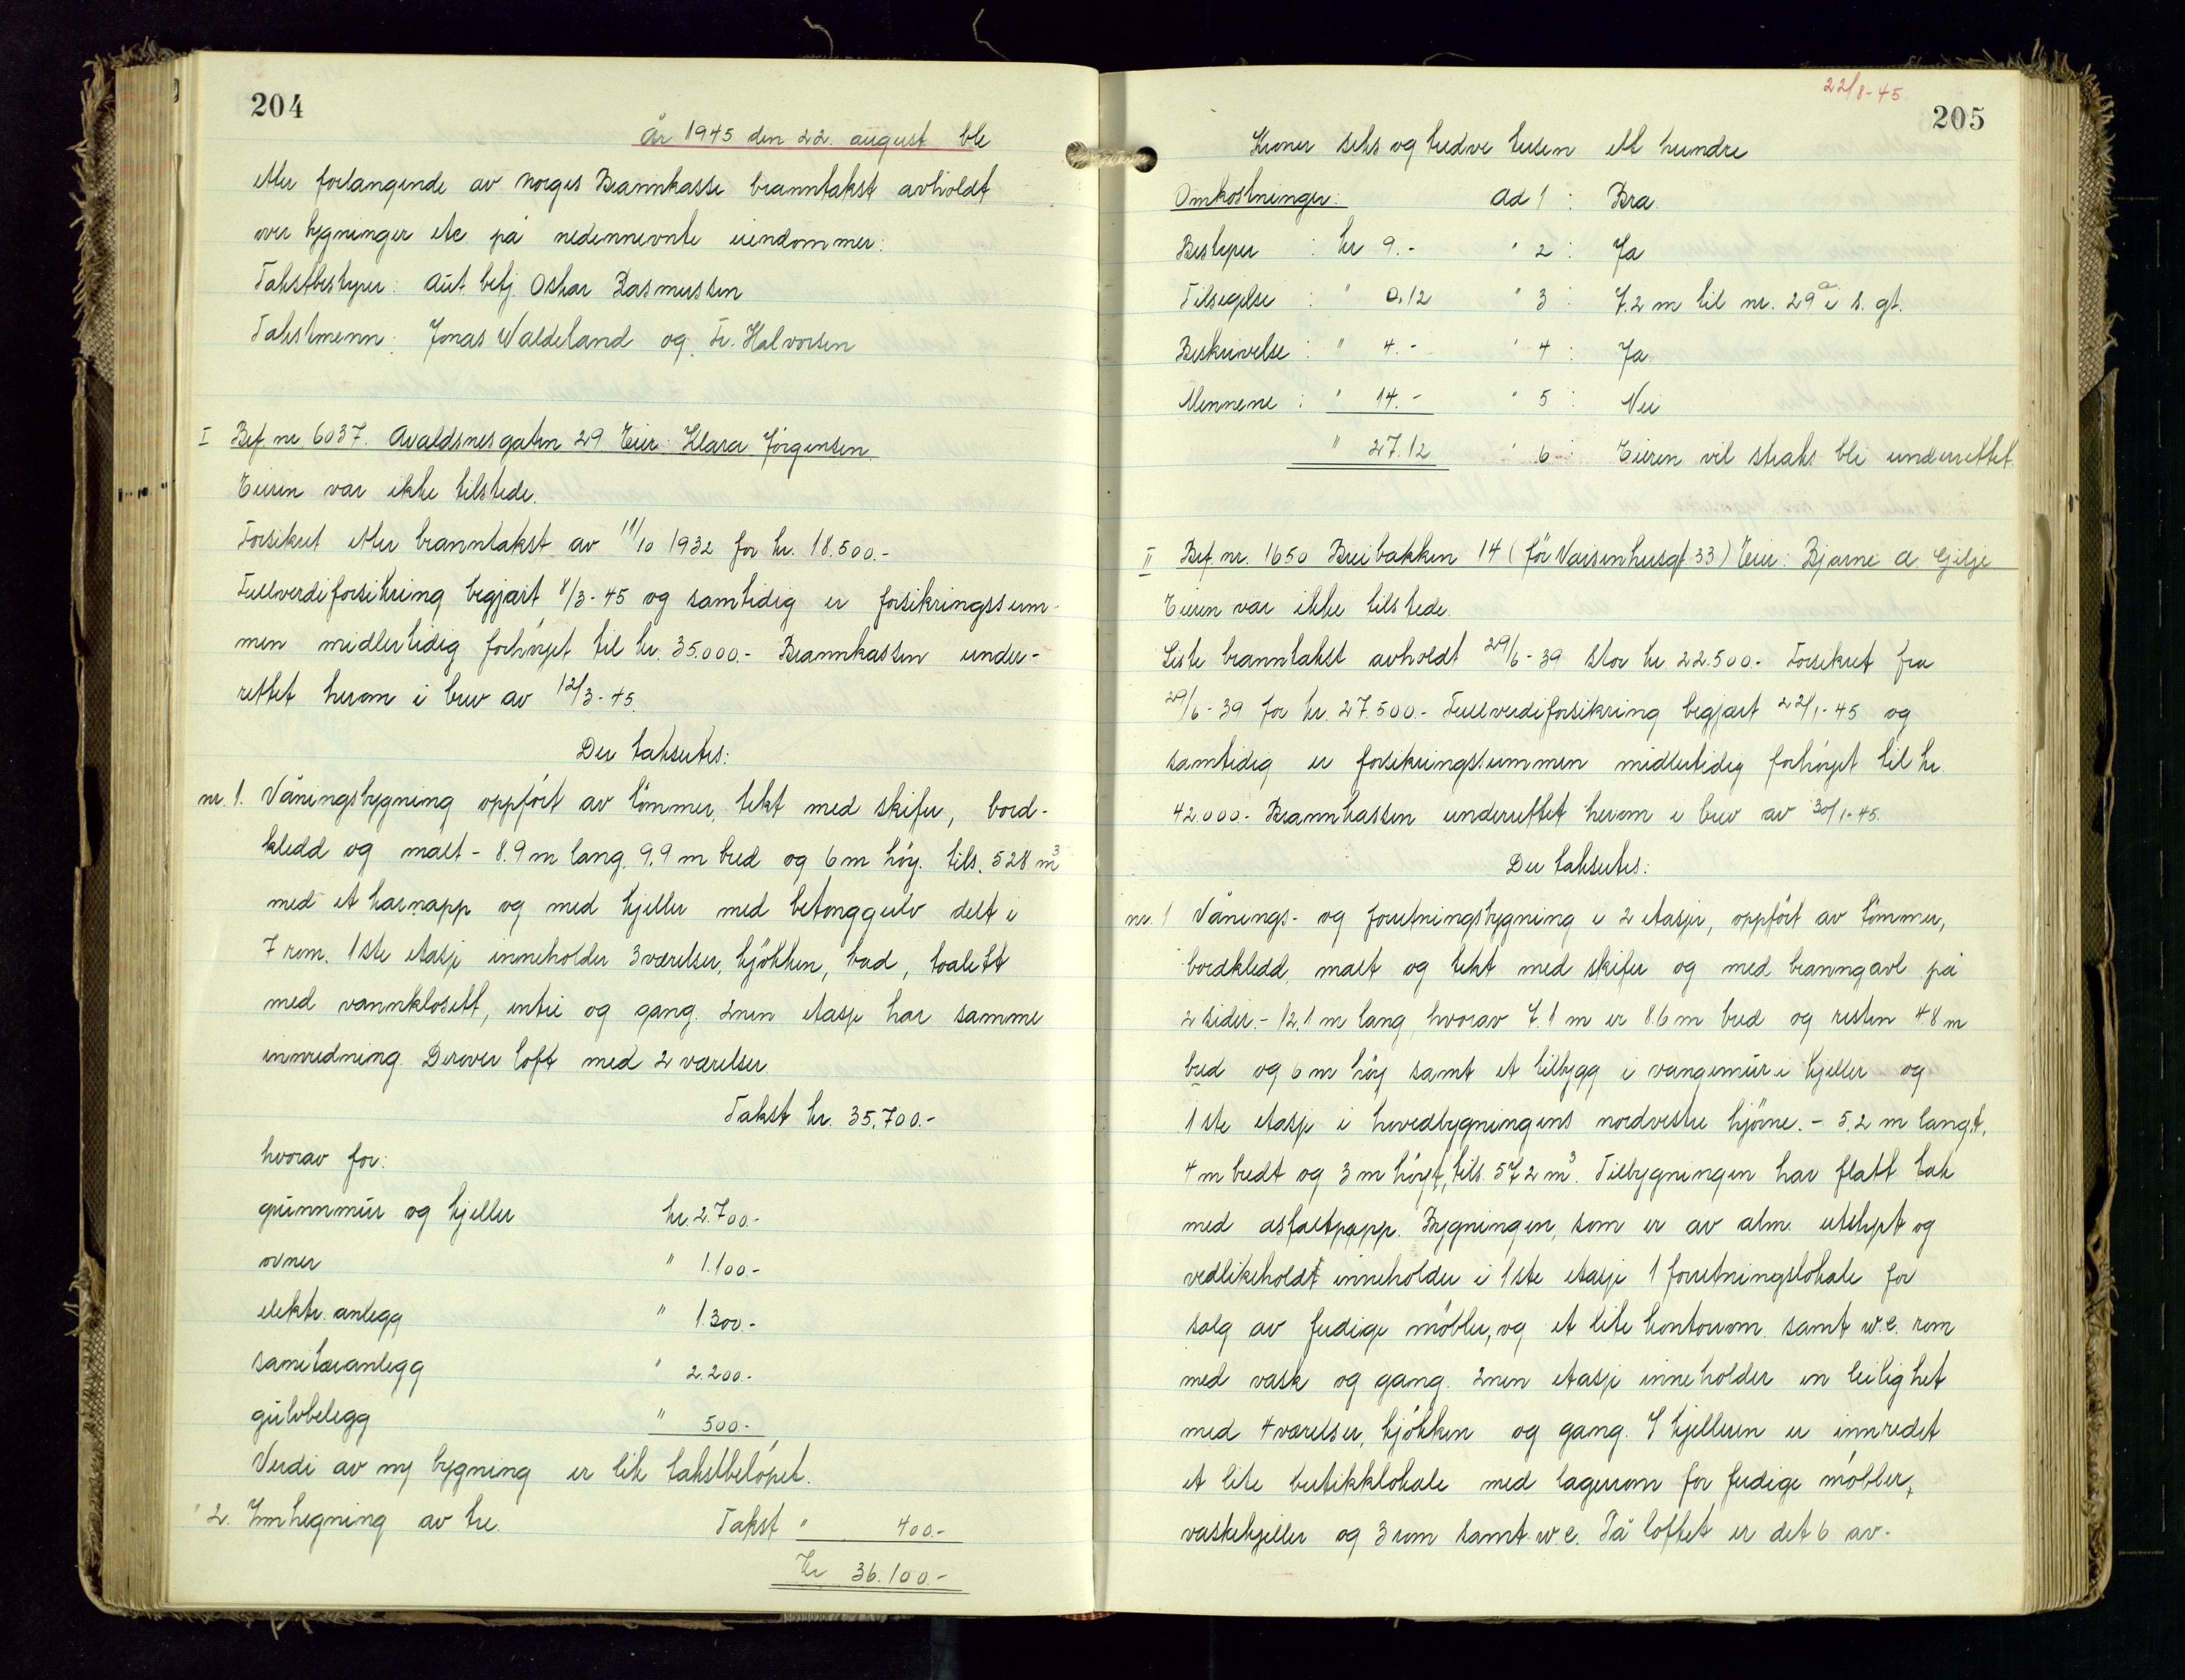 204
År 1945 den 22. august ble
etter forlangende av Norges Brannkasse branntakst avholdt
over bygninger etc. på nedennevnte eiendommer:
Takstbestyrer: Aut. betj. Oskar Rasmussen
Takstmenn: Jonas Waldeland og Fr. Halvorsen
I Bef. nr. 6037. Avaldsnesgaten 29. Eier: Klara Jörgensen.
Eieren var ikke tilstede.
Forsikret etter branntakst av 11/10 1932 for kr. 18.500.-
Fullverdiforsikring begjært 8/3-45 og samtidig er forsikringssum-
men midlertidig forhöyet til kr. 35.000.- Brannkassen under-
rettet herom i brev av 12/3-45.
Der taksertes:
nr. 1. Våningsbygning oppfört av tömmer, tekt med skifer, bord-
kledd og malt - 8.9 m lang. 9.9 m bred og 6 m höy. tils. 528 m³
med et karnapp og med kjeller med betonggulv delt i
7 rom. 1ste etasje inneholder 3 værelser, kjökken, bad, toalett
med vannklosett, entre og gang. 2nen etasje har samme
innredning. Derover loft med 2 værelser.
Takst kr. 35.700.-
hvorav for:
grunnmur og kjeller kr. 2.700.-
ovner " 1.100.-
elektr. anlegg " 1.300.-
sanitæranlegg " 2.200.-
gulvbelegg " 500.-
Verdi av ny bygning er lik takstbelöpet.
" 2. Innhegning av tre. Takst " 400.-
Kr 36.100.-
22/8-45.
205
Kroner seks og tredve tusen ett hundre
Omkostninger: Ad 1 : Bra.
Bestyrer : kr 9.- " 2 : Ja
Tilsigelse : " 0.12 " 3 : 7.2 m til nr. 29a i s. gt.
Beskrivelse : " 4.- " 4 : Ja.
Mennene : " 14.- " 5 : Nei
" 27.12 " 6 : Eieren vil straks bli underrettet.
II Bef. nr. 1650 Breibakken 14 (för Vaisenhusgt 33) Eier: Bjarne A. Gilje
Eieren var ikke tilstede.
Siste branntakst avholdt 29/6-39 stor kr. 22.500.- Forsikret fra
29/6-39 for kr. 27.500.- Fullverdiforsikring begjært 22/1-45 og
samtidig er forsikringssummen midlertidig forhöyet til kr.
42.000.- Brannkassen underrettet herom i brev av 30/1-45.
Der taksertes:
nr. 1 Vånings- og forretningsbygning i 2 etasjer, oppfört av tömmer,
bordkledd, malt og tekt med skifer og med branngavl på
2 sider.- 12,1 m lang hvorav 7.1 m er 8.6 m bred og resten 4.8 m
bred og 6 m höy samt et tilbygg i vangemur i kjeller og
1ste etasje i hovedbygningens nordvestre hjörne.- 5.2 m langt,
4 m bredt og 3 m höyt, tils. 572 m³. Tilbygningen har flatt tak
med asfaltpapp. Bygningen, som er av alm. utstyr og
vedlikeholdt inneholder i 1ste etasje 1 forretningslokale for
salg av ferdige möbler, og et lite kontorrom samt w.c. rom
med vask og gang. 2nen etasje inneholder en leilighet
med 4 værelser, kjökken og gang. I kjelleren er innredet
et lite butikklokale med lagerrom for ferdige möbler,
vaskekjeller og 3 rom samt w.c. På loftet er det 6 av-